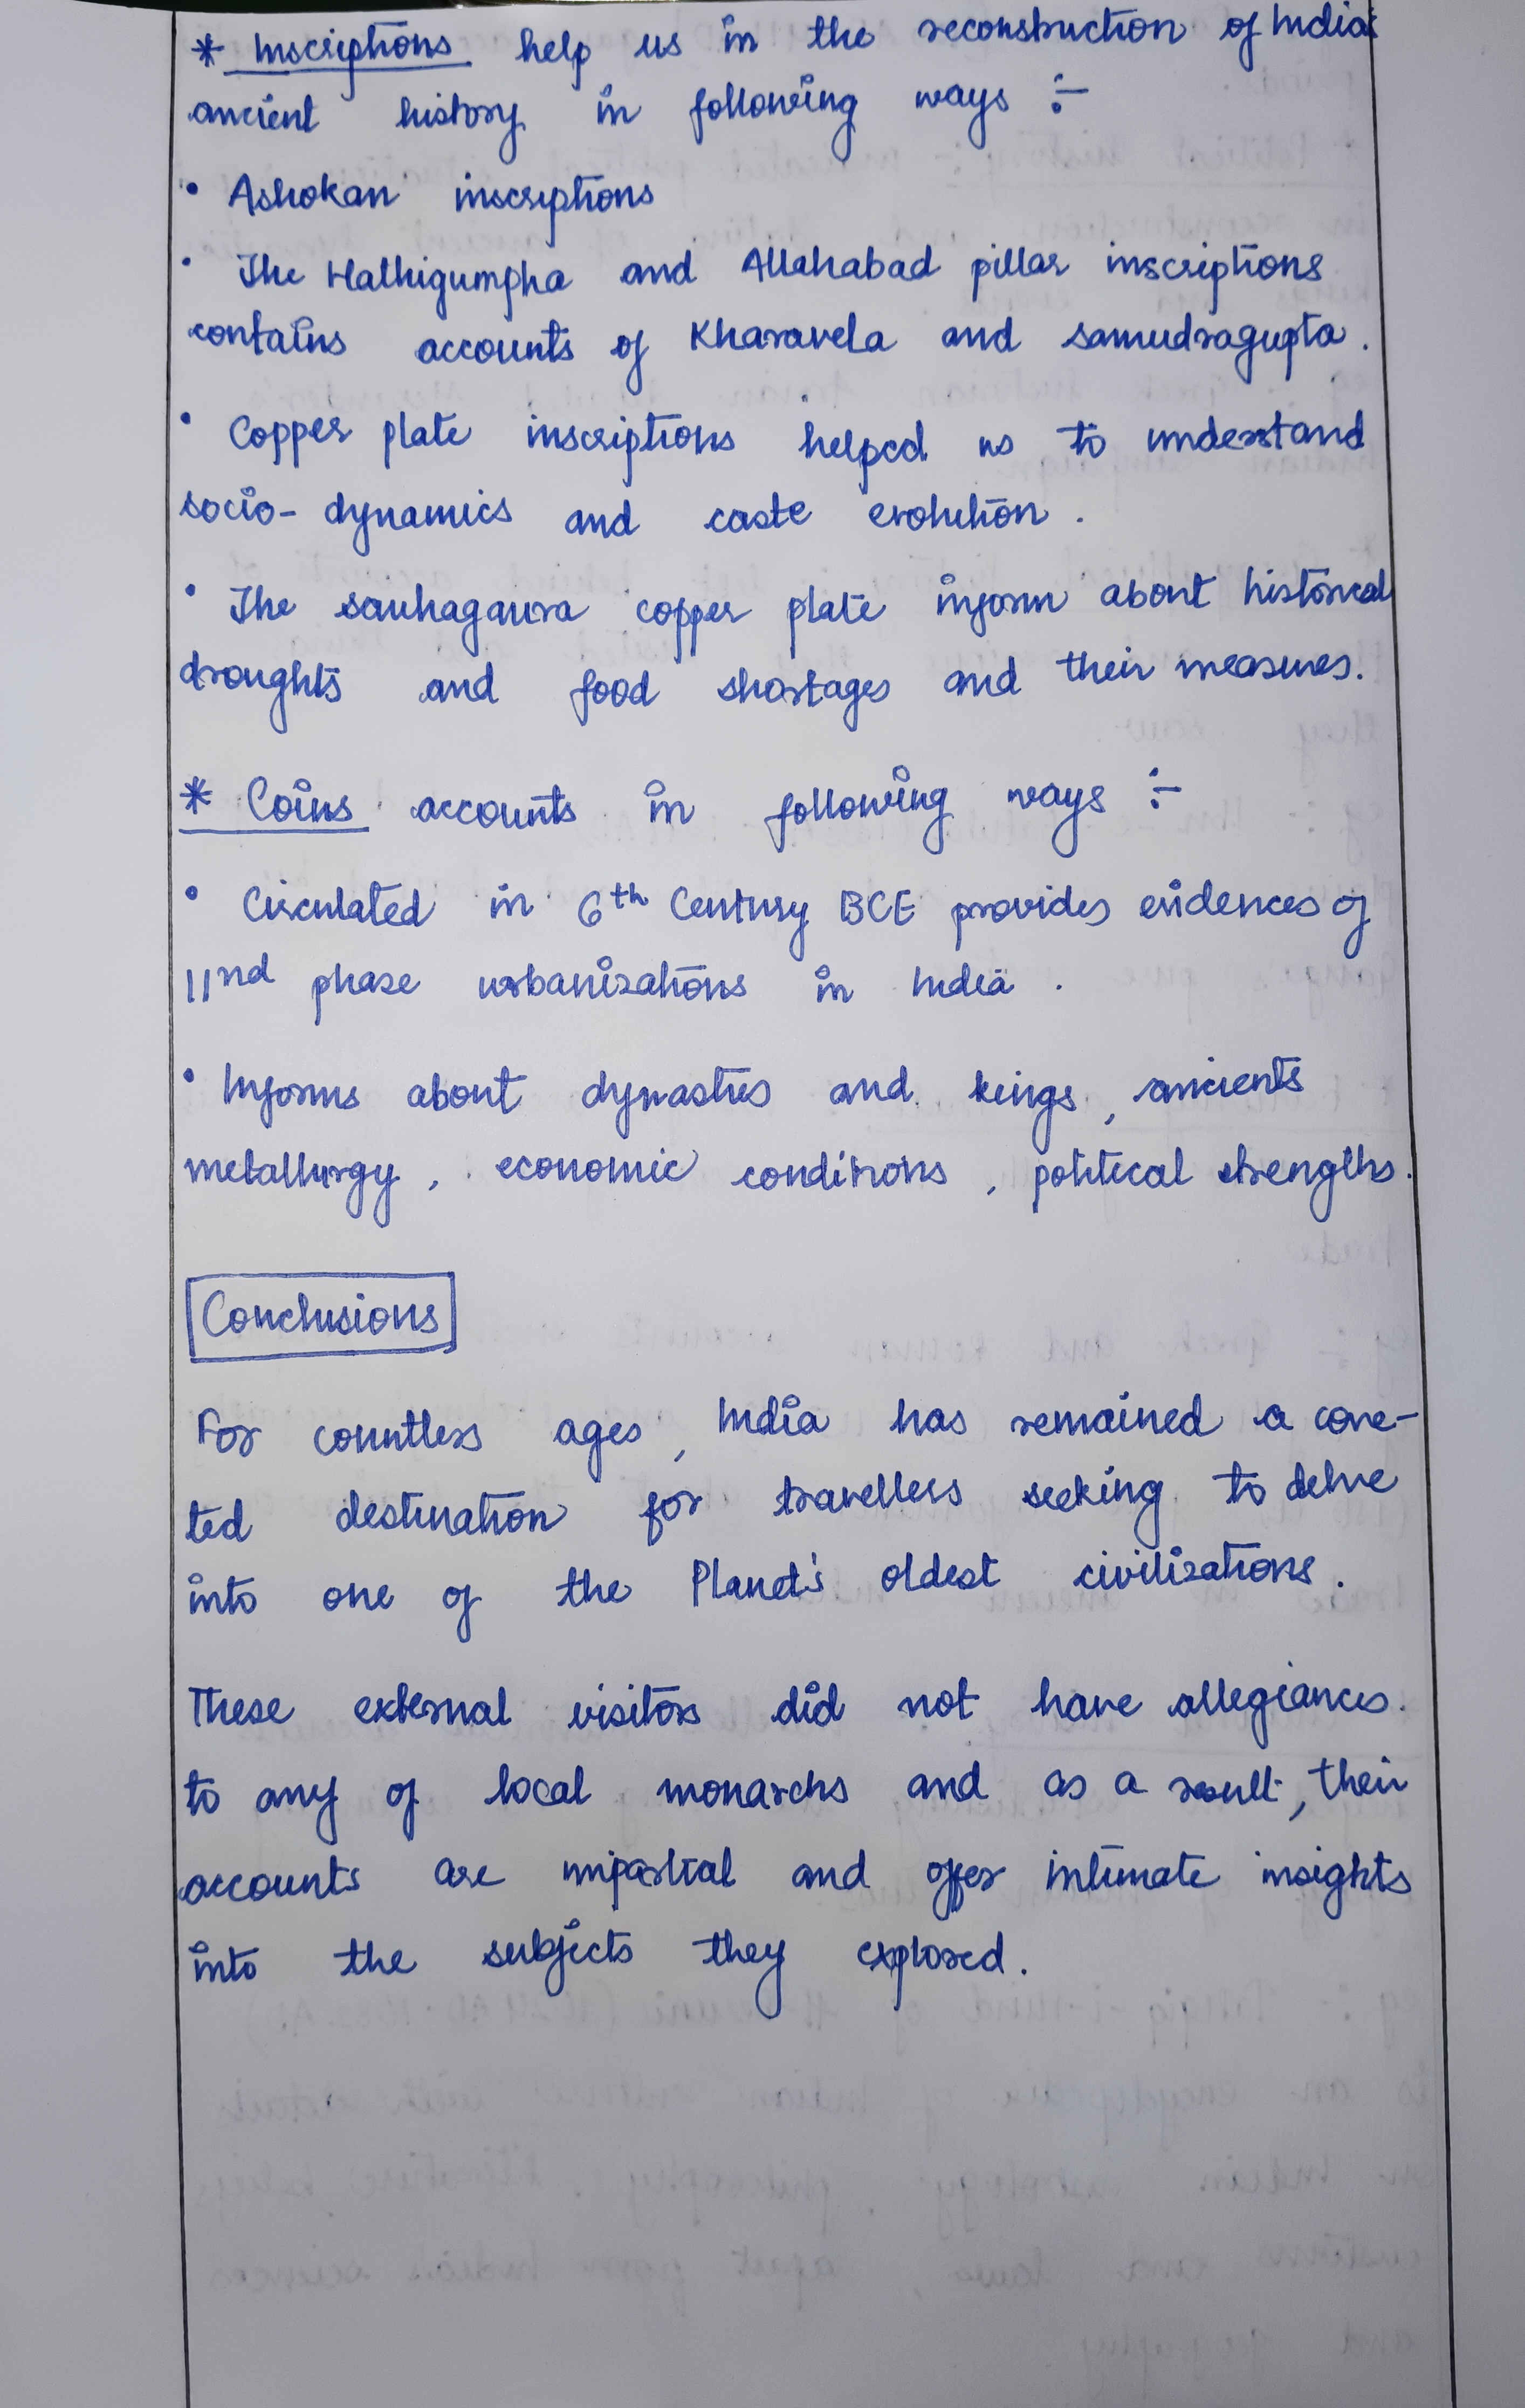 * Inscriptions help us in the reconstruction of India
ancient history in following ways :-
• Ashokan inscriptions
• The Hathigumpha and Allahabad pillar inscriptions
contains accounts of Kharavela and Samudragupta.
• Copper plate inscriptions helped us to understand
socio-dynamics and caste evolution.
• The sauhagaura copper plate inform about historical
droughts and food shortages and their measures.
* Coins accounts in following ways :-
• Circulated in 6th Century BCE provides evidences of
IInd phase urbanizations in India.
• Informs about dynasties and kings, ancients
metallurgy, economic conditions, political strengths.
Conclusions
For countless ages, India has remained a cove-
ted destination for travellers seeking to delve
into one of the Planet's oldest civilizations.
These external visitors did not have allegiances
to any of local monarchs and as a result, their
accounts are impartial and offer intimate insights
into the subjects they explored.